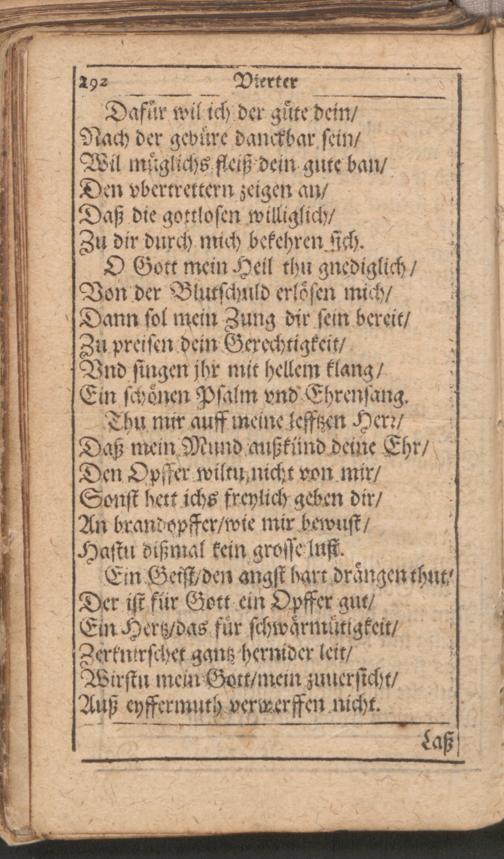 292 Vierter
Dafür wil ich der güte dein/
Nach der gebüre danckbar sein/
Wil müglichs fleiß dein gute ban/
Den vbertrettern zeigen an/
Daß die gottlosen williglich/
Zu dir durch mich bekehren sich.
O Gott mein Heil thu gnediglich/
Von der Blutschuld erlösen mich/
Dann sol mein Zung dir sein bereit/
Zu preisen dein Gerechtigkeit/
Vnd singen jhr mit hellem klang/
Ein schönen Psalm vnd Ehrensang.
Thu mir auff meine lefftzen Herr/
Daß mein Mund außkünd deine Ehr/
Den Opffer wiltu nicht von mir/
Sonst hett ichs freylich geben dir/
An brandopffer/wie mir bewust/
Hastu dißmal kein grosse lust.
Ein Geist/den angst hart drängen thut/
Der ist für Gott ein Opffer gut/
Ein Hertz/das für schwärmütigkeit/
Zerknirschet gantz hernider leit/
Wirstu mein Gott/mein zuuersicht/
Auß eyffermuth verwerffen nicht.
Laß